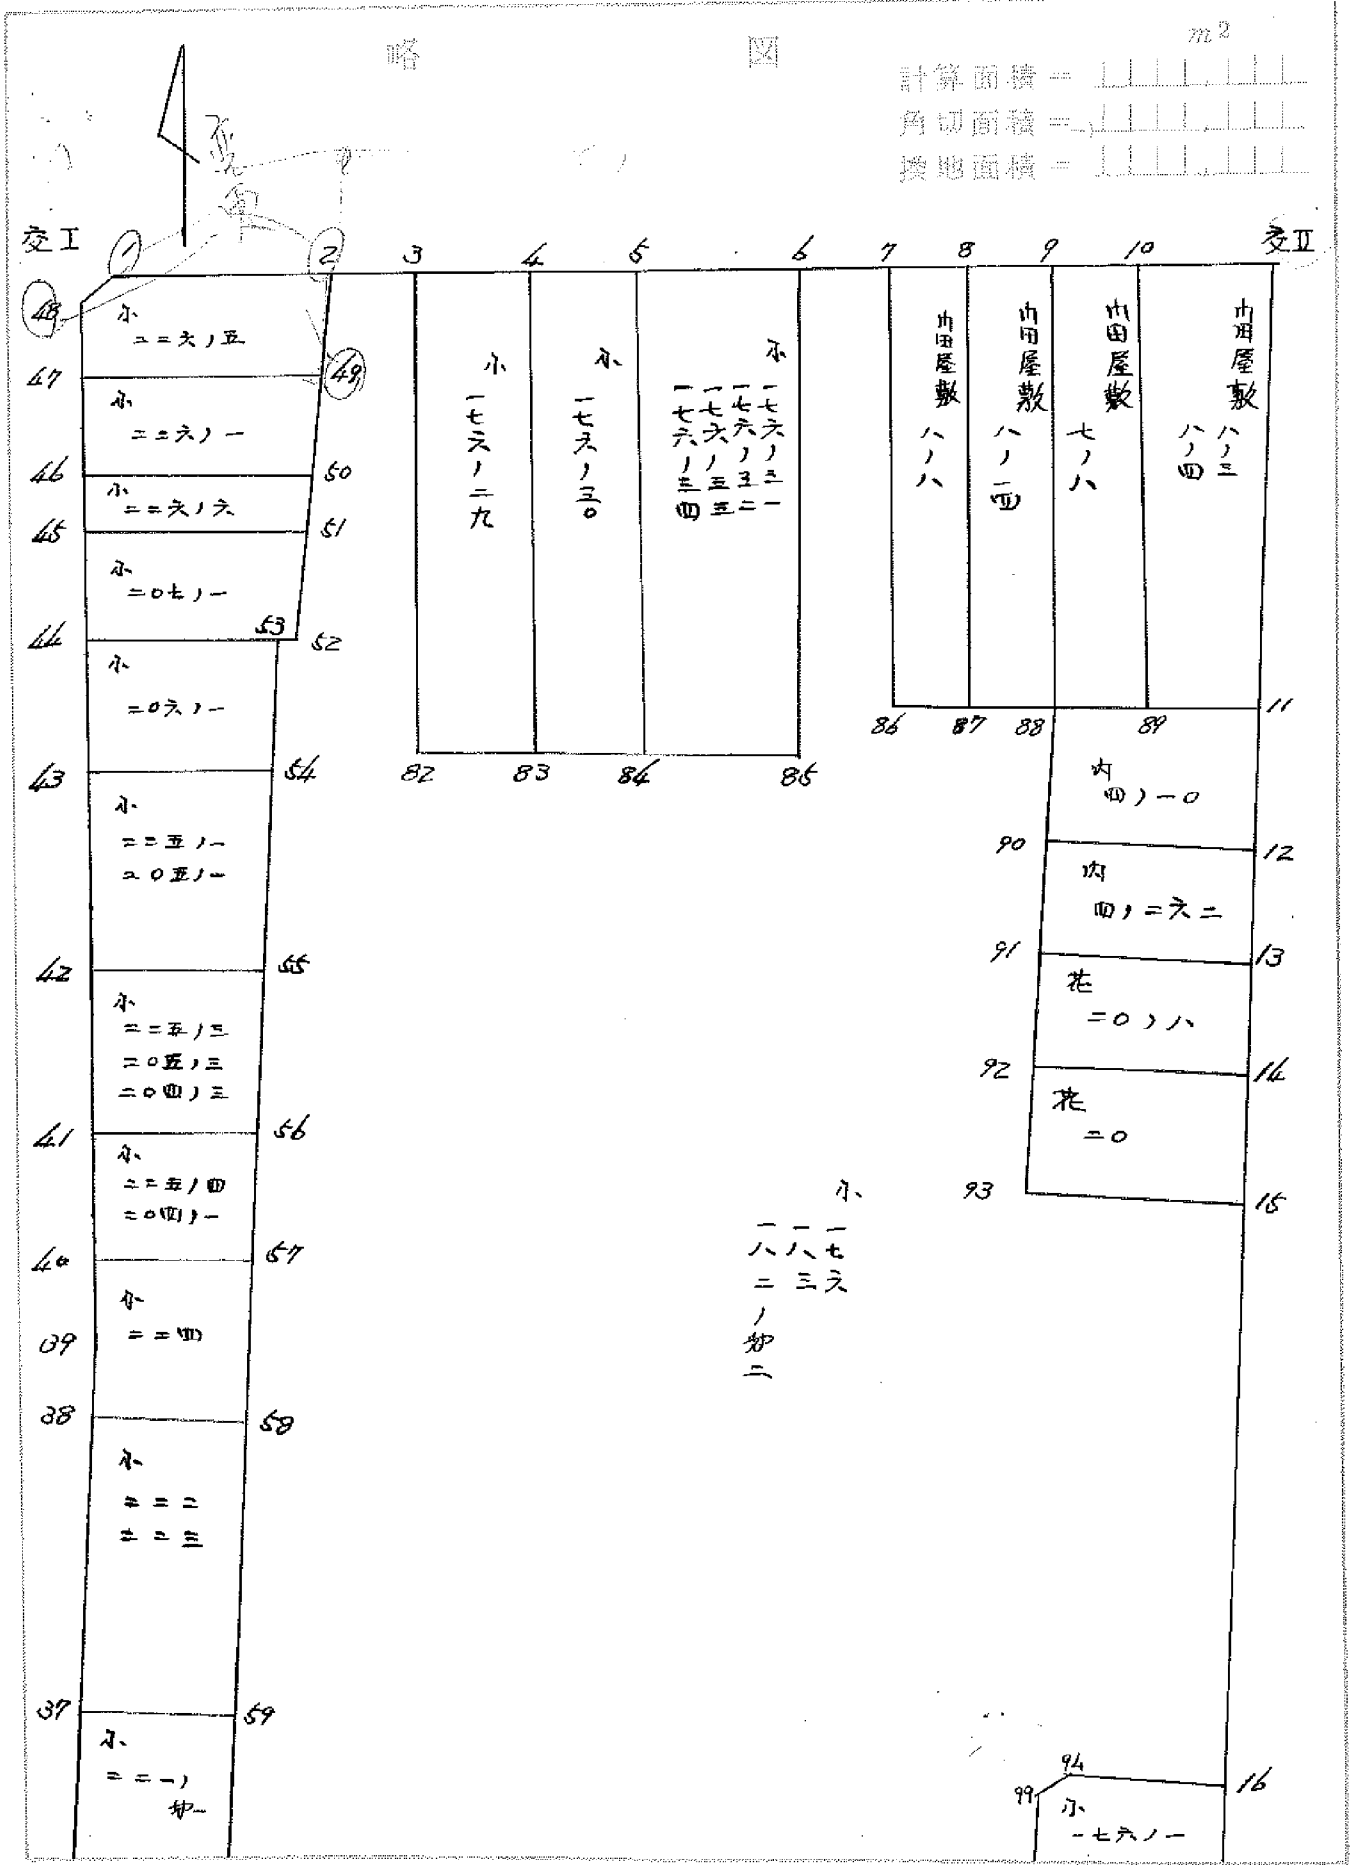 略 図
m²
計算面積 =
角切面積 =
換地面積 =
交I
1
2
3
4
5
6
7
8
9
10
交II
48
小
二二六ノ五
47
49
小
二二六ノ一
46
50
小
二二六ノ六
45
51
小
二〇七ノ一
44
53
52
小
二〇六ノ一
43
54
小
二二五ノ一
二〇五ノ一
42
55
小
二二五ノ三
二〇五ノ三
二〇四ノ三
41
56
小
二二五ノ四
二〇四ノ一
40
57
小
二二四
39
38
58
小
二二二
二二三
37
59
小
二二一ノ
小
一七六ノ二九
小
一七六ノ三〇
小
一七六ノ三一
一七六ノ三二
一七六ノ三三
一七六ノ三四
82
83
84
85
内田屋敷
八ノ八
内田屋敷
八ノ一四
内田屋敷
七ノ八
内田屋敷
八ノ三
八ノ四
86
87
88
89
11
内
四ノ一〇
90
12
内
四ノ二六二
91
13
花
二〇ノ八
92
14
花
二〇
93
15
小
一七六
一八三
一八二ノ
94
99
16
小
一七六ノ一